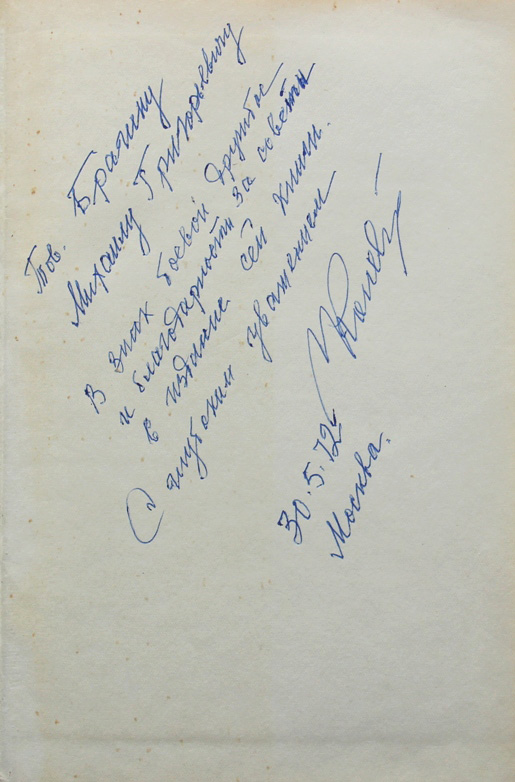 Тов. Брагину
Михаилу Григорьевичу
В знак боевой дружбы
и благодарности за советы
в издание сей книги.
С глубоким уважением
Конев
30.5.72
Москва.